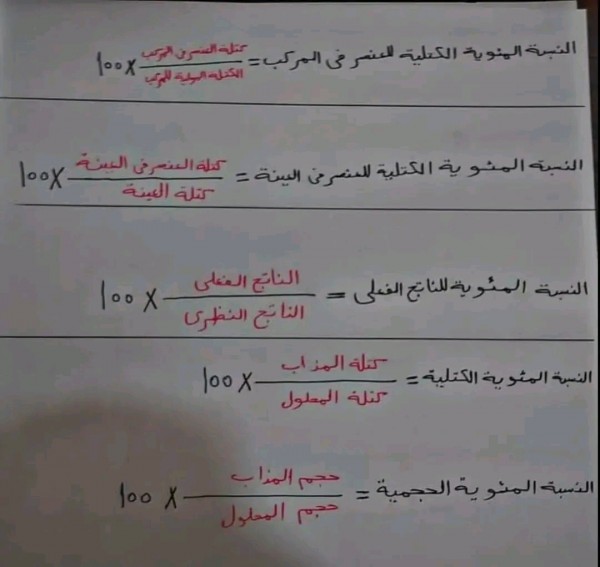 النسبة المئوية الكتلية للعنصر في المركب = كتلة العنصر في المركب / الكتلة المولية للمركب × 100
النسبة المئوية الكتلية للعنصر في العينة = كتلة العنصر في العينة / كتلة العينة × 100
النسبة المئوية للناتج الفعلى = الناتج الفعلى / الناتج النظرى × 100
النسبة المئوية الكتلية = كتلة المذاب / كتلة المحلول × 100
النسبة المئوية الحجمية = حجم المذاب / حجم المحلول × 100